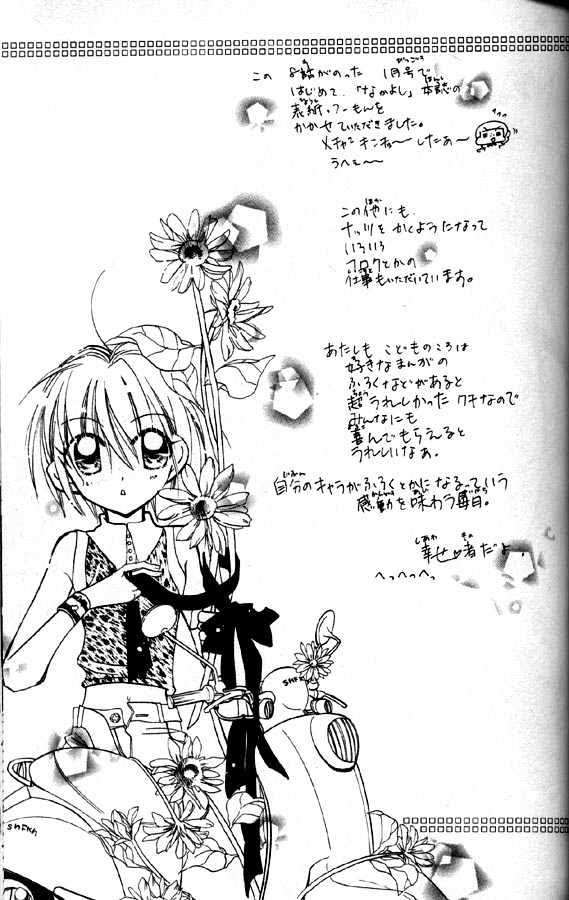 この 8話がのった 1月号で
はじめて、「なかよし」本誌の
表紙・ふーもんを
かかせていただきました。
メチャ² キンチョーしたぁ〜
うへぇ〜〜
この他にも
ナッツをかくようになって
いろいろ
フロクとかの
仕事もいただいています。
あたしも こどものころは
好きなまんがの
ふろくなどがあると
超うれしかったクチなので
みんなにも
喜んでもらえると
うれしいなぁ。
自分のキャラがふろくとかになるっていう
感動を味わう毎日。
幸せ者だよ
へっへっへっ
SHFKH